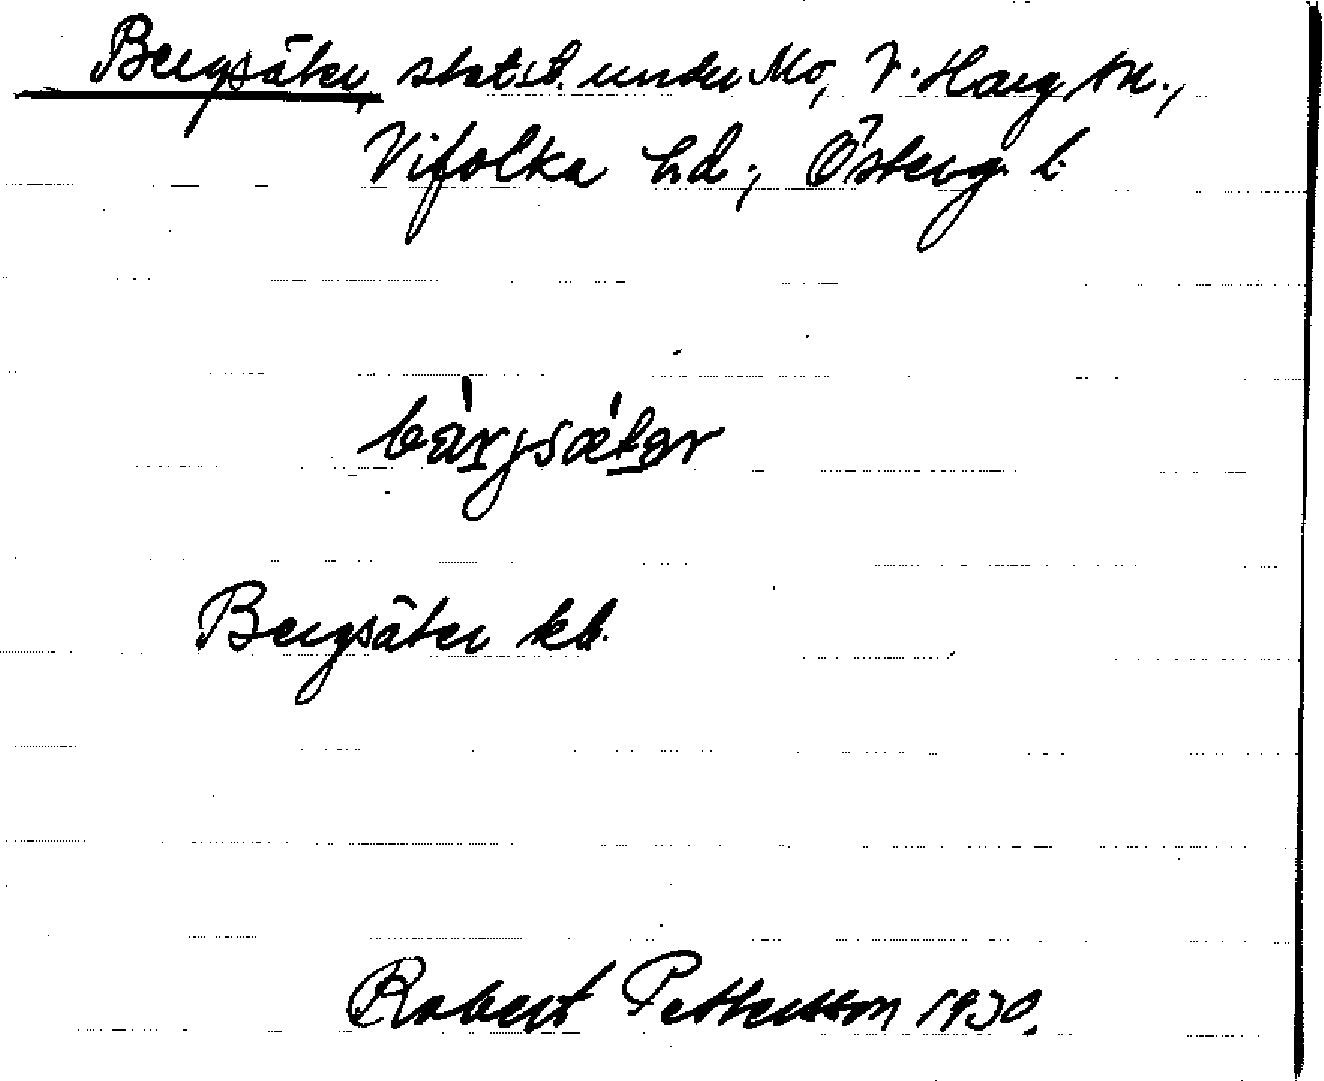 Bergsäter, statst. under Mo, V. Harg sn.,
Vifolka hd., Österg. l.
bärjsætər
Bergsäter kb.
Robert Pettersson 1930.